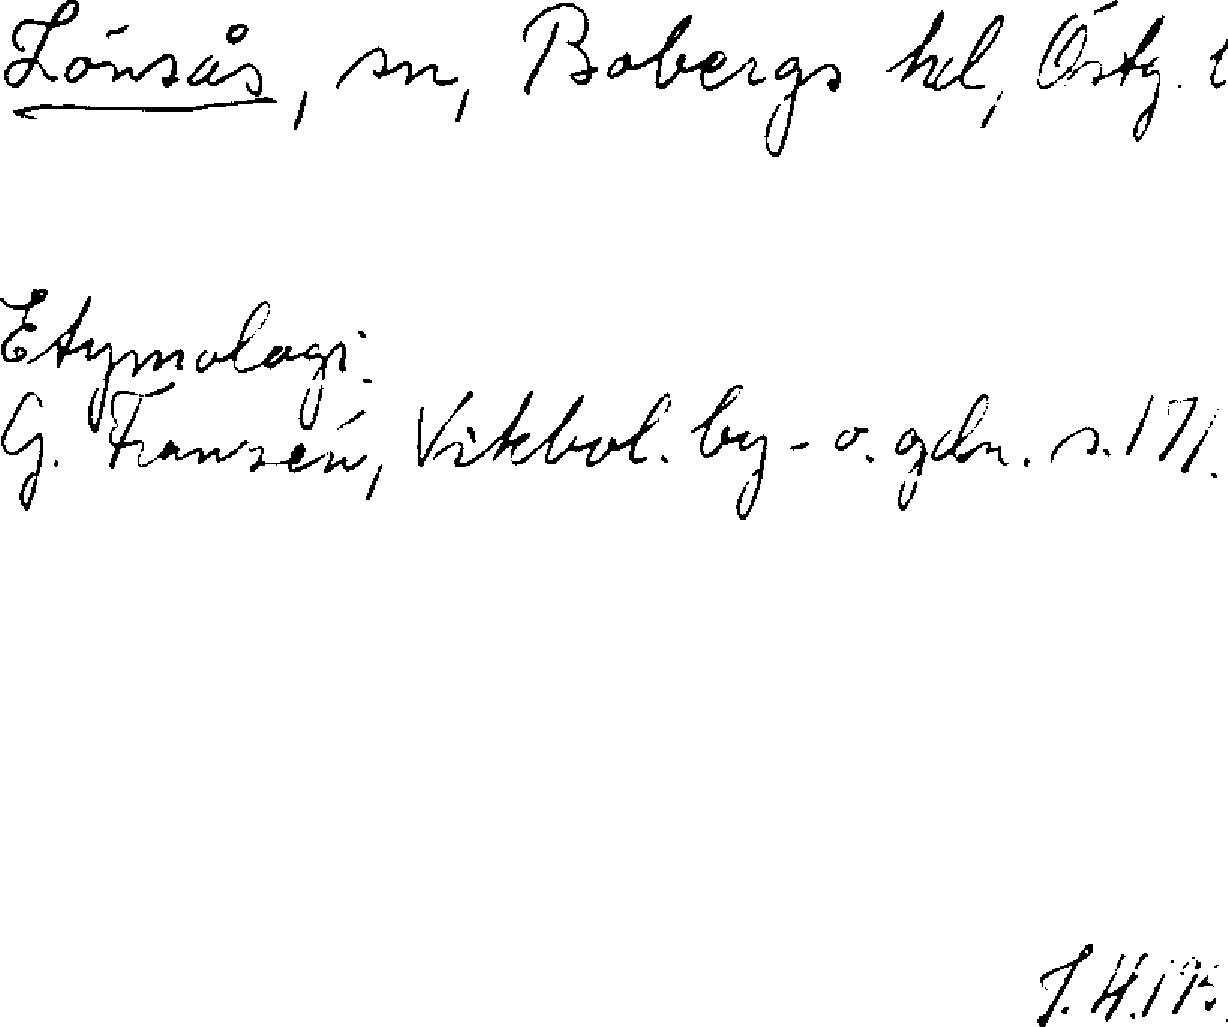 Lönsås, sn, Bobergs hd, Östg. l
Etymologi.
G. Franzén, Vikbol. by- o. gdn. s. 171.
J. H. 195